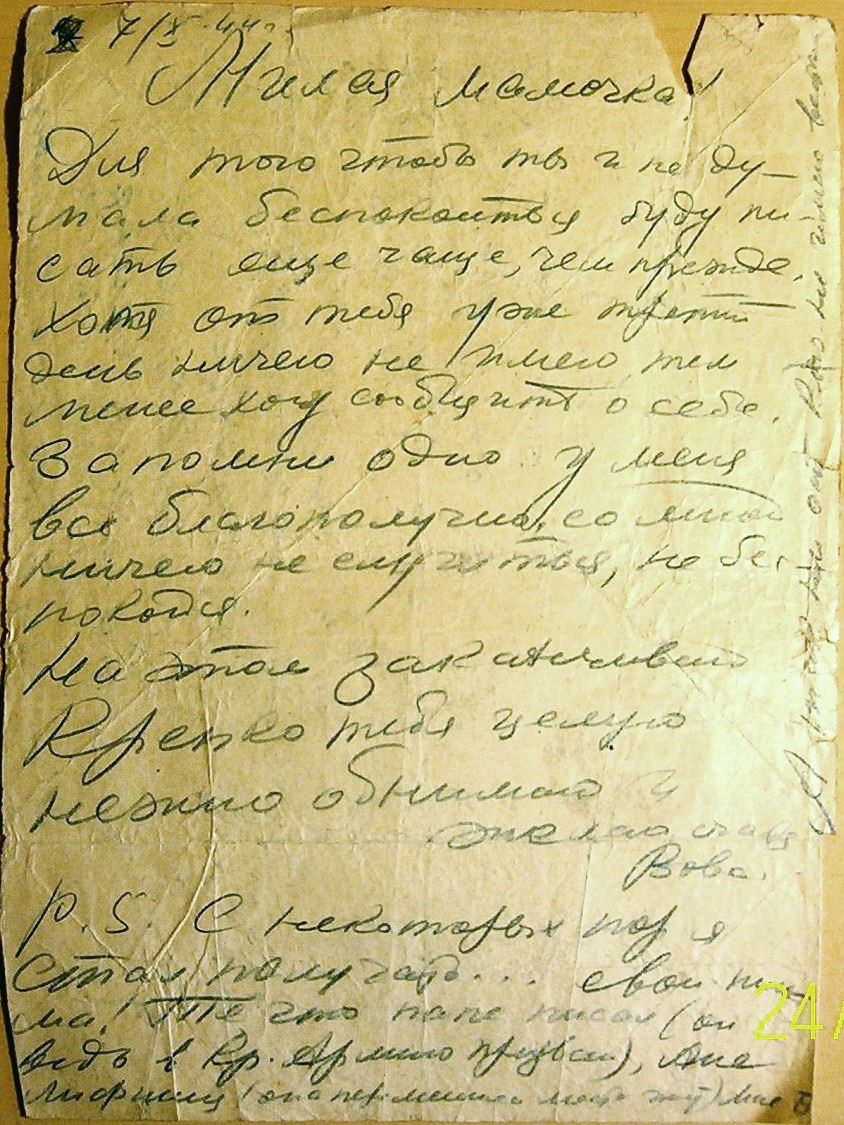 7/X-44г.
Милая мамочка!
Для того чтобы ты и не ду-
мала беспокоиться буду пи-
сать еще чаще, чем прежде.
Хотя от тебя уже третий
день ничего не имею тем
менее хочу сообщить о себе.
Запомни одно у меня
все благополучно, со мной
ничего не случиться, не бес
покойся.
На этом заканчиваю
Крепко тебя целую
нежно обнимаю и
желаю
Вова.
P.S. С некоторых пор я
стал получать... свои пись-
ма! Те что папе писал (он
ведь в Кр. Армию призван), Ане
мне
24/